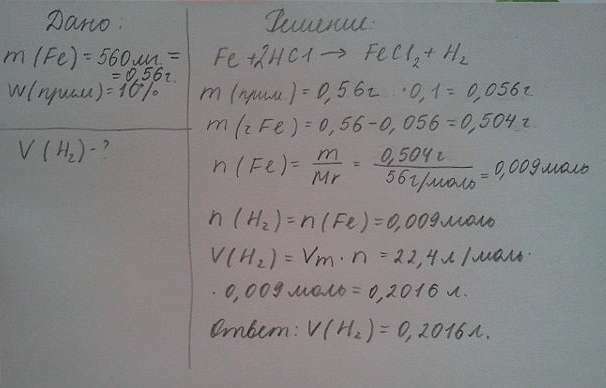 Дано:
m(Fe)=560мг.=
=0,56г.
W(прим)=10%
V(H₂)-?
Решение:
Fe+2HCl→FeCl₂+H₂
m(прим.)=0,56г ·0,1=0,056г
m(чFe)=0,56-0,056=0,504г
n(Fe)= m/Mr = 0,504г/56г/моль =0,009моль
n(H₂)=n(Fe)=0,009моль
V(H₂)=Vm·n=22,4л/моль·
·0,009моль=0,2016 л.
Ответ: V(H₂)=0,2016л.